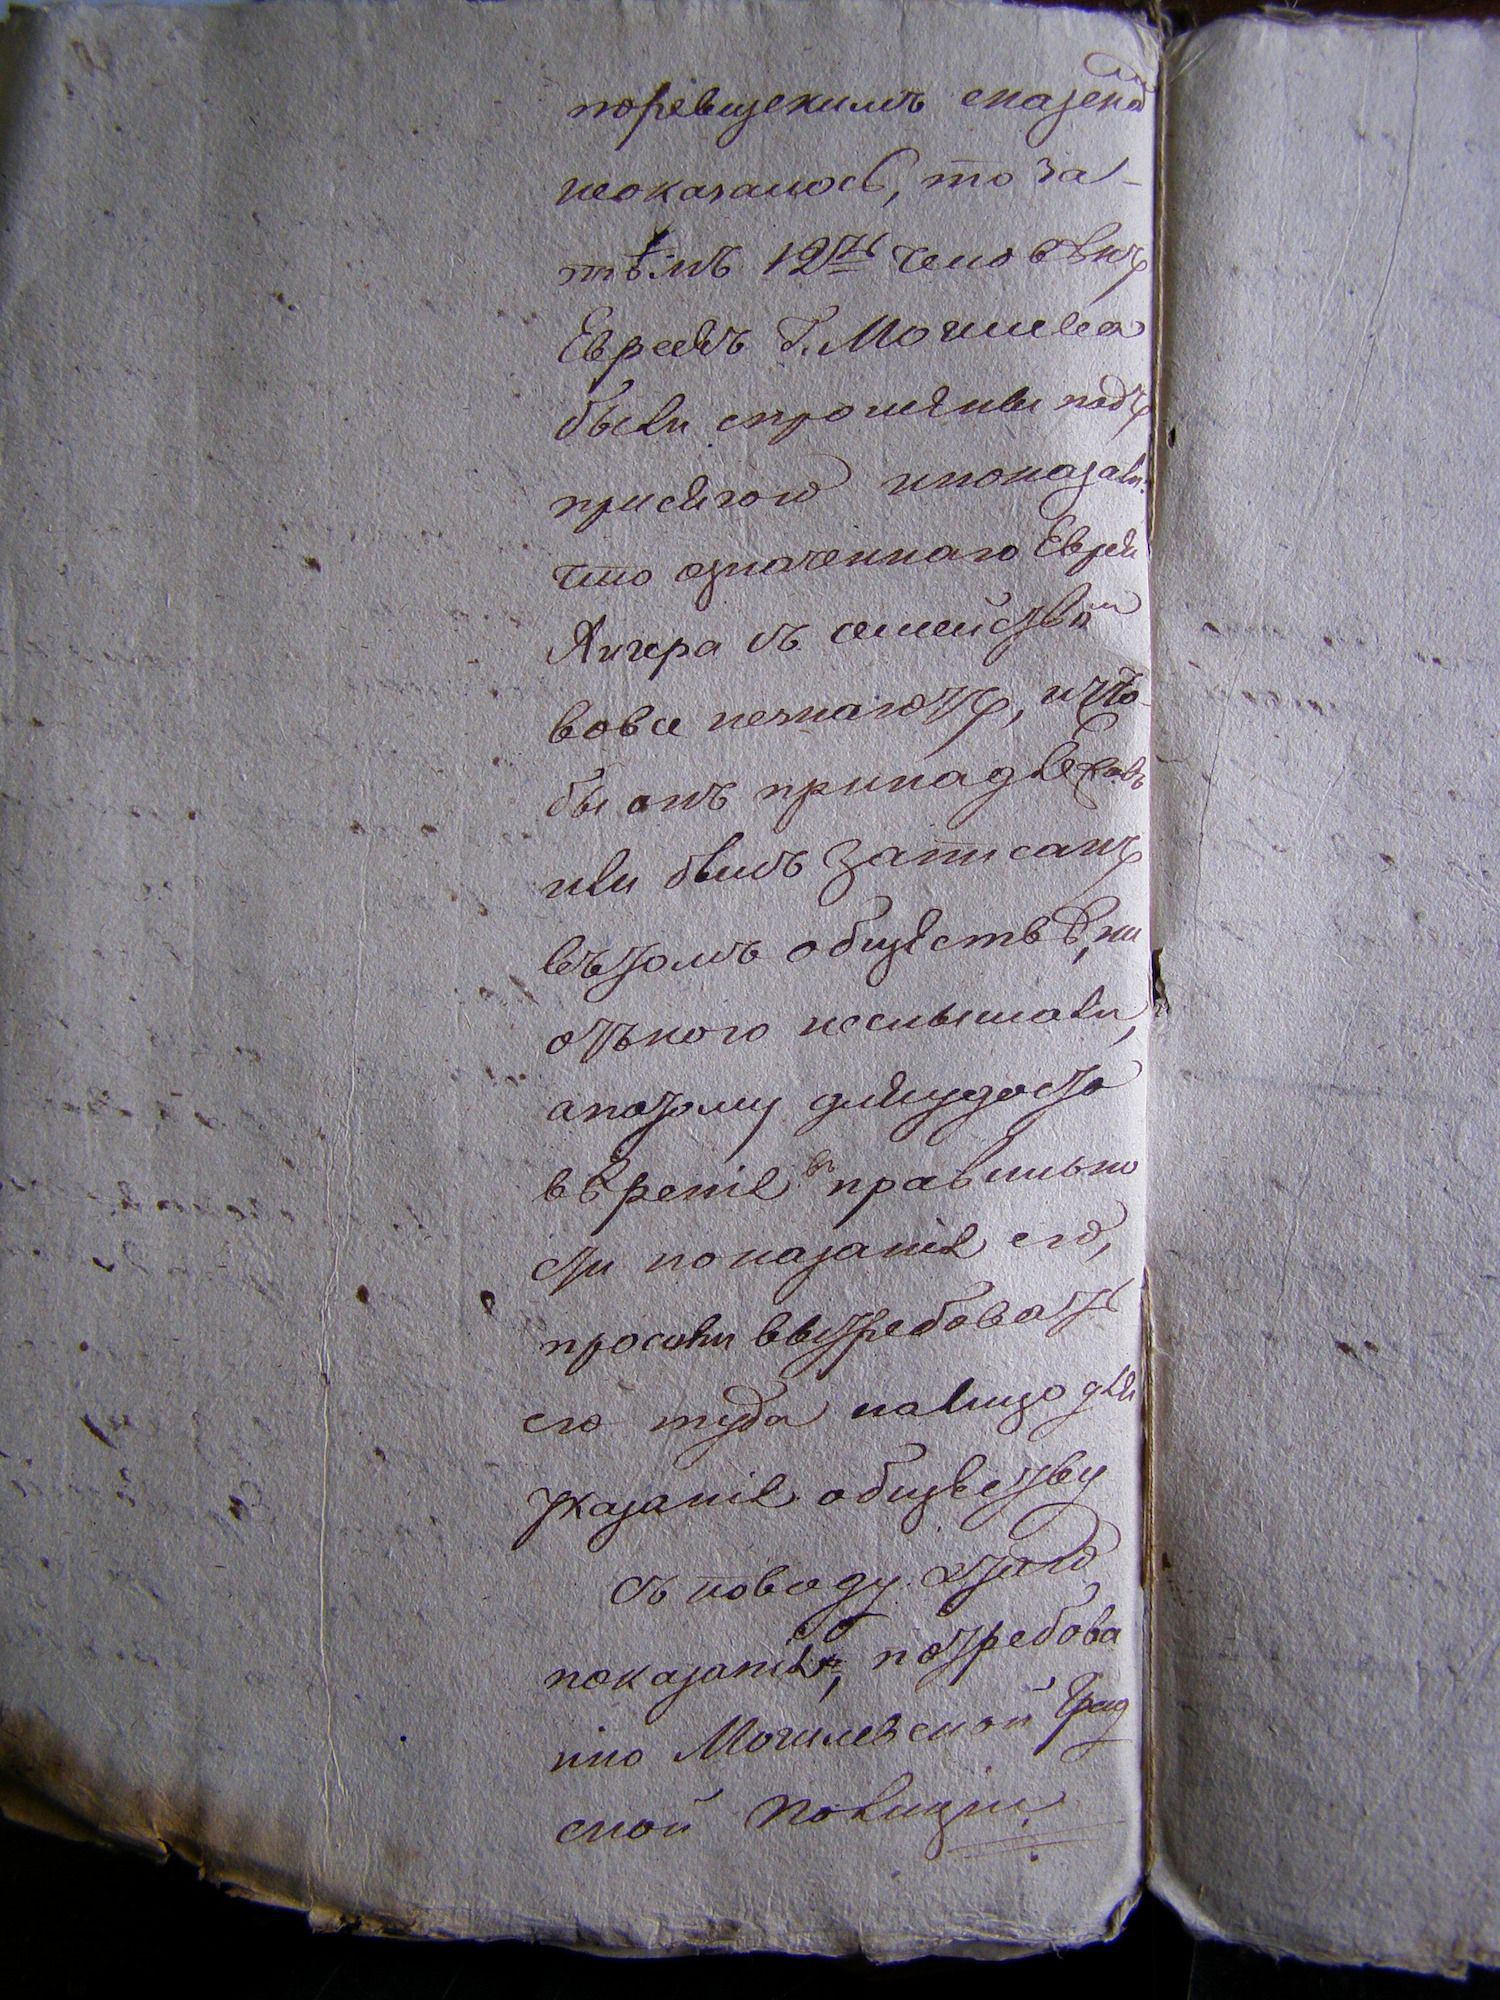 поревизскимъ сказкамъ
неоказалось, то за-
тѣмъ 12ть человѣкъ
Евреевъ Г. Могилева
были спрошены подъ
присягою ипоказали:
что означеннаго Еврея
съ семействомъ
вовсе незнаютъ, ичто-
бы онъ принадлежалъ
или былъ записанъ
вътомъ обществѣ, ни
отъкого неслышали,
апотому дляудосто
вѣренія въ правильно
сти показанія его,
просили вытребовать
его туда налицо для
указанія обществу
Съ поводу этаго
показанія, потребова
но Могилевской Град
ской Полиціи.